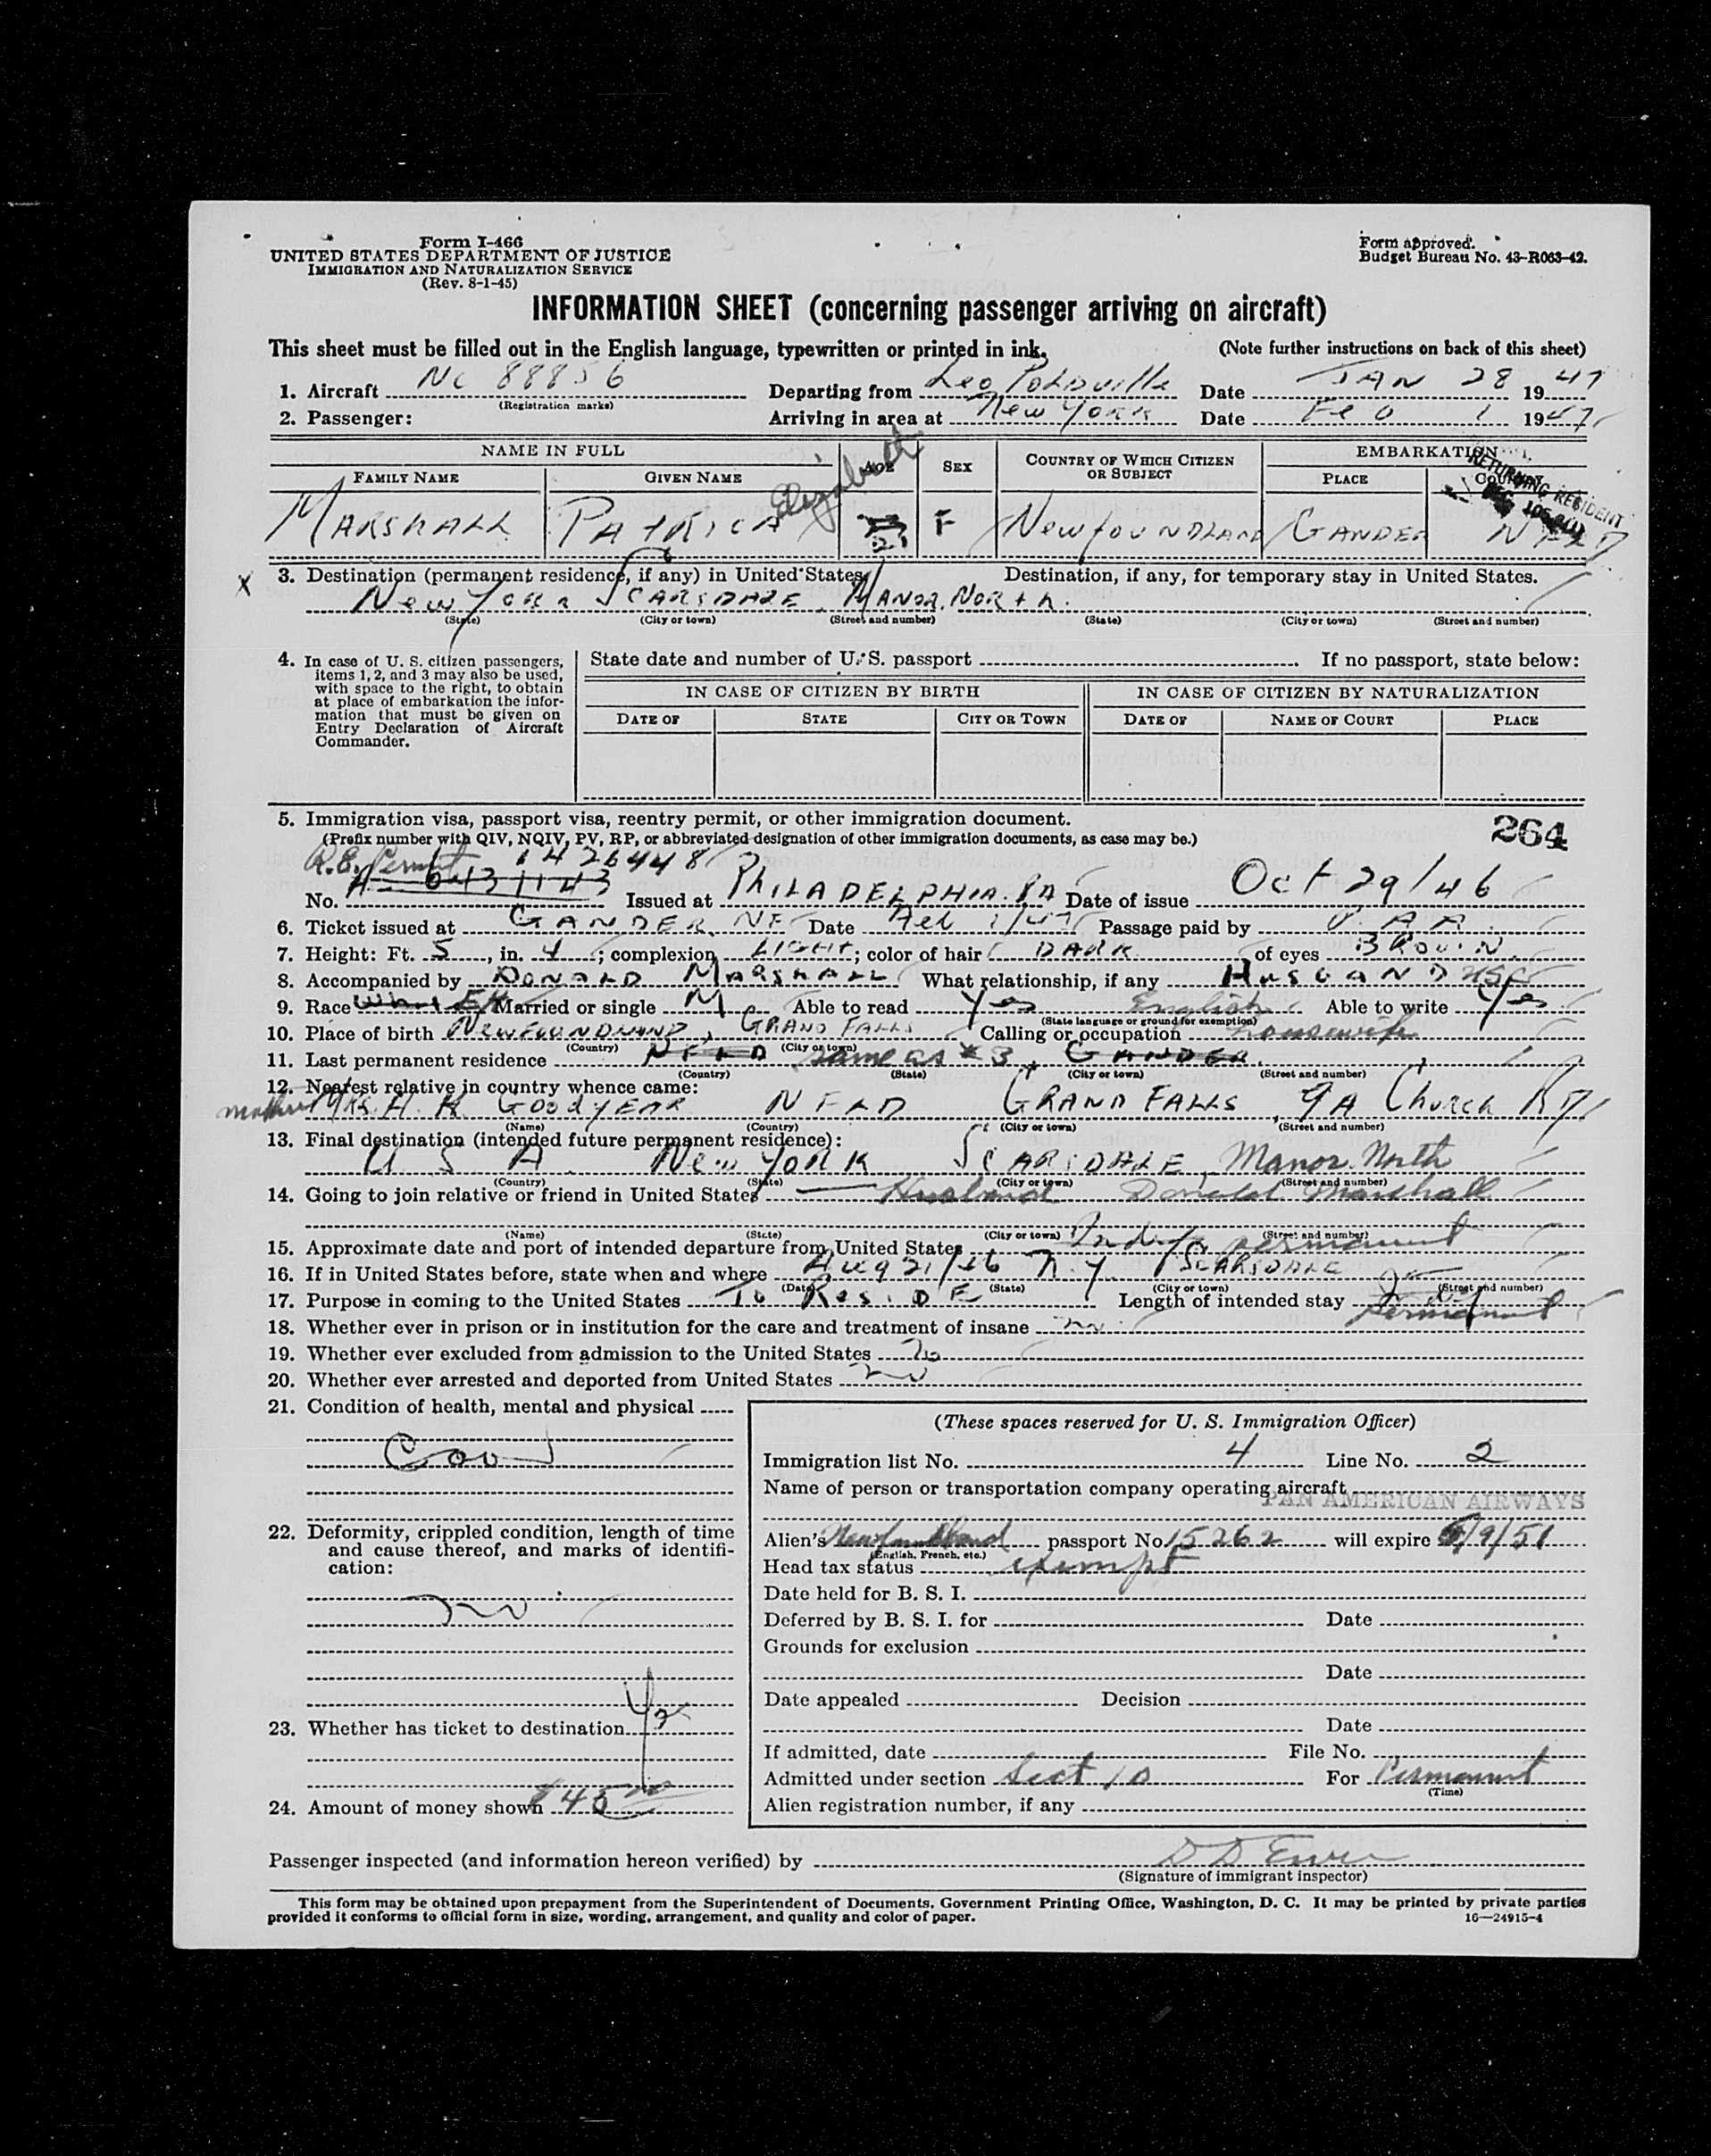 Form I-466
UNITED STATES DEPARTMENT OF JUSTICE
IMMIGRATION AND NATURALIZATION SERVICE
(Rev. 8-1-45)
Form approved.
Budget Bureau No. 43-R063-42.
INFORMATION SHEET (concerning passenger arriving on aircraft)
This sheet must be filled out in the English language, typewritten or printed in ink. (Note further instructions on back of this sheet)
1. Aircraft NC 88856 Departing from Leopoldville Date JAN 28 1947
(Registration marks)
2. Passenger: Arriving in area at New York Date Feb 1 1947
NAME IN FULL AGE SEX COUNTRY OF WHICH CITIZEN OR SUBJECT EMBARKATION
FAMILY NAME GIVEN NAME PLACE COUNTRY
RETURNING RESIDENT
MARSHALL PATRICIA Elizabeth 23 F NEWFOUNDLAND GANDER NFLD
X 3. Destination (permanent residence, if any) in United States Destination, if any, for temporary stay in United States.
New York SCARSDALE, MANOR. NORTH.
(State) (City or town) (Street and number) (State) (City or town) (Street and number)
4. In case of U. S. citizen passengers, items 1, 2, and 3 may also be used, with space to the right, to obtain at place of embarkation the information that must be given on Entry Declaration of Aircraft Commander.
State date and number of U. S. passport If no passport, state below:
IN CASE OF CITIZEN BY BIRTH IN CASE OF CITIZEN BY NATURALIZATION
DATE OF STATE CITY OR TOWN DATE OF NAME OF COURT PLACE
5. Immigration visa, passport visa, reentry permit, or other immigration document.
(Prefix number with QIV, NQIV, PV, RP, or abbreviated designation of other immigration documents, as case may be.)
264
R.E. Permit 1426448
No. A-6431143 Issued at PHILADELPHIA. PA Date of issue Oct 29/46
6. Ticket issued at GANDER, NF Date Feb 1/47 Passage paid by P.A.A.
7. Height: Ft. 5, in. 4; complexion LIGHT; color of hair DARK of eyes BROWN
8. Accompanied by DONALD MARSHALL What relationship, if any HUSBAND USC
9. Race White Married or single M Able to read Yes English Able to write Yes
(State language or ground for exemption)
10. Place of birth NEWFOUNDLAND, GRAND FALLS Calling or occupation housewife
(Country) (City or town)
11. Last permanent residence NFLD same as #3, GANDER.
(Country) (State) (City or town) (Street and number)
12. Nearest relative in country whence came:
mother MRS. H. H. GOODYEAR NFLD GRAND FALLS, 9A Church RD
(Name) (Country) (City or town) (Street and number)
13. Final destination (intended future permanent residence):
U S A. NEW YORK SCARSDALE, Manor North
(Country) (State) (City or town) (Street and number)
14. Going to join relative or friend in United States Husband Donald Marshall
(Name) (State) (City or town) (Street and number)
15. Approximate date and port of intended departure from United States Indef. permanent
16. If in United States before, state when and where Aug 21/46 N.Y. SCARSDALE
(Date) (State) (City or town) (Street and number)
17. Purpose in coming to the United States To RESIDE Length of intended stay Permanent
18. Whether ever in prison or in institution for the care and treatment of insane no
19. Whether ever excluded from admission to the United States No
20. Whether ever arrested and deported from United States no
21. Condition of health, mental and physical
Good
22. Deformity, crippled condition, length of time and cause thereof, and marks of identification:
no
23. Whether has ticket to destination
24. Amount of money shown $45.00
(These spaces reserved for U. S. Immigration Officer)
Immigration list No. 4 Line No. 2
Name of person or transportation company operating aircraft
PAN AMERICAN AIRWAYS
Alien's Newfoundland passport No 15262 will expire 5/9/51
(English, French, etc.)
Head tax status exempt
Date held for B. S. I.
Deferred by B. S. I. for Date
Grounds for exclusion
Date
Date appealed Decision
Date
If admitted, date File No.
Admitted under section Sect 10 For Permanent
(Time)
Alien registration number, if any
Passenger inspected (and information hereon verified) by
(Signature of immigrant inspector)
This form may be obtained upon prepayment from the Superintendent of Documents, Government Printing Office, Washington, D. C. It may be printed by private parties
provided it conforms to official form in size, wording, arrangement, and quality and color of paper. 16—24915-4